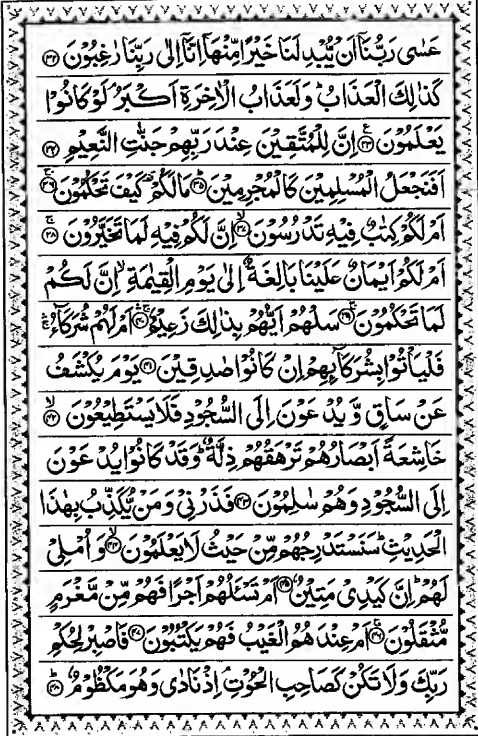 عَسٰى رَبُّنَاۤ اَنْ یُّبْدِلَنَا خَیْرًا مِّنْهَاۤ اِنَّاۤ اِلٰى رَبِّنَا رٰغِبُوْنَ ﴿۳۲﴾
كَذٰلِكَ الْعَذَابُ ؕ وَلَعَذَابُ الْاٰخِرَةِ اَكْبَرُ ۘ لَوْ كَانُوْا
یَعْلَمُوْنَ ﴿۳۳﴾ اِنَّ لِلْمُتَّقِیْنَ عِنْدَ رَبِّهِمْ جَنّٰتِ النَّعِیْمِ ﴿۳۴﴾
اَفَنَجْعَلُ الْمُسْلِمِیْنَ كَالْمُجْرِمِیْنَ ﴿۳۵﴾ مَا لَكُمْ ۥ كَیْفَ تَحْكُمُوْنَ ﴿۳۶﴾
اَمْ لَكُمْ كِتٰبٌ فِیْهِ تَدْرُسُوْنَ ﴿۳۷﴾ اِنَّ لَكُمْ فِیْهِ لَمَا تَخَیَّرُوْنَ ﴿۳۸﴾
اَمْ لَكُمْ اَیْمَانٌ عَلَیْنَا بَالِغَةٌ اِلٰى یَوْمِ الْقِیٰمَةِ ۙ اِنَّ لَكُمْ
لَمَا تَحْكُمُوْنَ ﴿۳۹﴾ سَلْهُمْ اَیُّهُمْ بِذٰلِكَ زَعِیْمٌ ﴿۴۰﴾ اَمْ لَهُمْ شُرَكَآءُ ۛ
فَلْیَاْتُوْا بِشُرَكَآىِٕهِمْ اِنْ كَانُوْا صٰدِقِیْنَ ﴿۴۱﴾ یَوْمَ یُكْشَفُ
عَنْ سَاقٍ وَّ یُدْعَوْنَ اِلَى السُّجُوْدِ فَلَا یَسْتَطِیْعُوْنَ ﴿۴۲﴾
خَاشِعَةً اَبْصَارُهُمْ تَرْهَقُهُمْ ذِلَّةٌ ؕ وَقَدْ كَانُوْا یُدْعَوْنَ
اِلَى السُّجُوْدِ وَهُمْ سٰلِمُوْنَ ﴿۴۳﴾ فَذَرْنِیْ وَمَنْ یُّكَذِّبُ بِهٰذَا
الْحَدِیْثِ ؕ سَنَسْتَدْرِجُهُمْ مِّنْ حَیْثُ لَا یَعْلَمُوْنَ ﴿۴۴﴾ وَ اُمْلِیْ
لَهُمْ ؕ اِنَّ كَیْدِیْ مَتِیْنٌ ﴿۴۵﴾ اَمْ تَسْـَٔلُهُمْ اَجْرًا فَهُمْ مِّنْ مَّغْرَمٍ
مُّثْقَلُوْنَ ﴿۴۶﴾ اَمْ عِنْدَهُمُ الْغَیْبُ فَهُمْ یَكْتُبُوْنَ ﴿۴۷﴾ فَاصْبِرْ لِحُكْمِ
رَبِّكَ وَلَا تَكُنْ كَصَاحِبِ الْحُوْتِ ۘ اِذْ نَادٰى وَهُوَ مَكْظُوْمٌ ﴿۴۸﴾